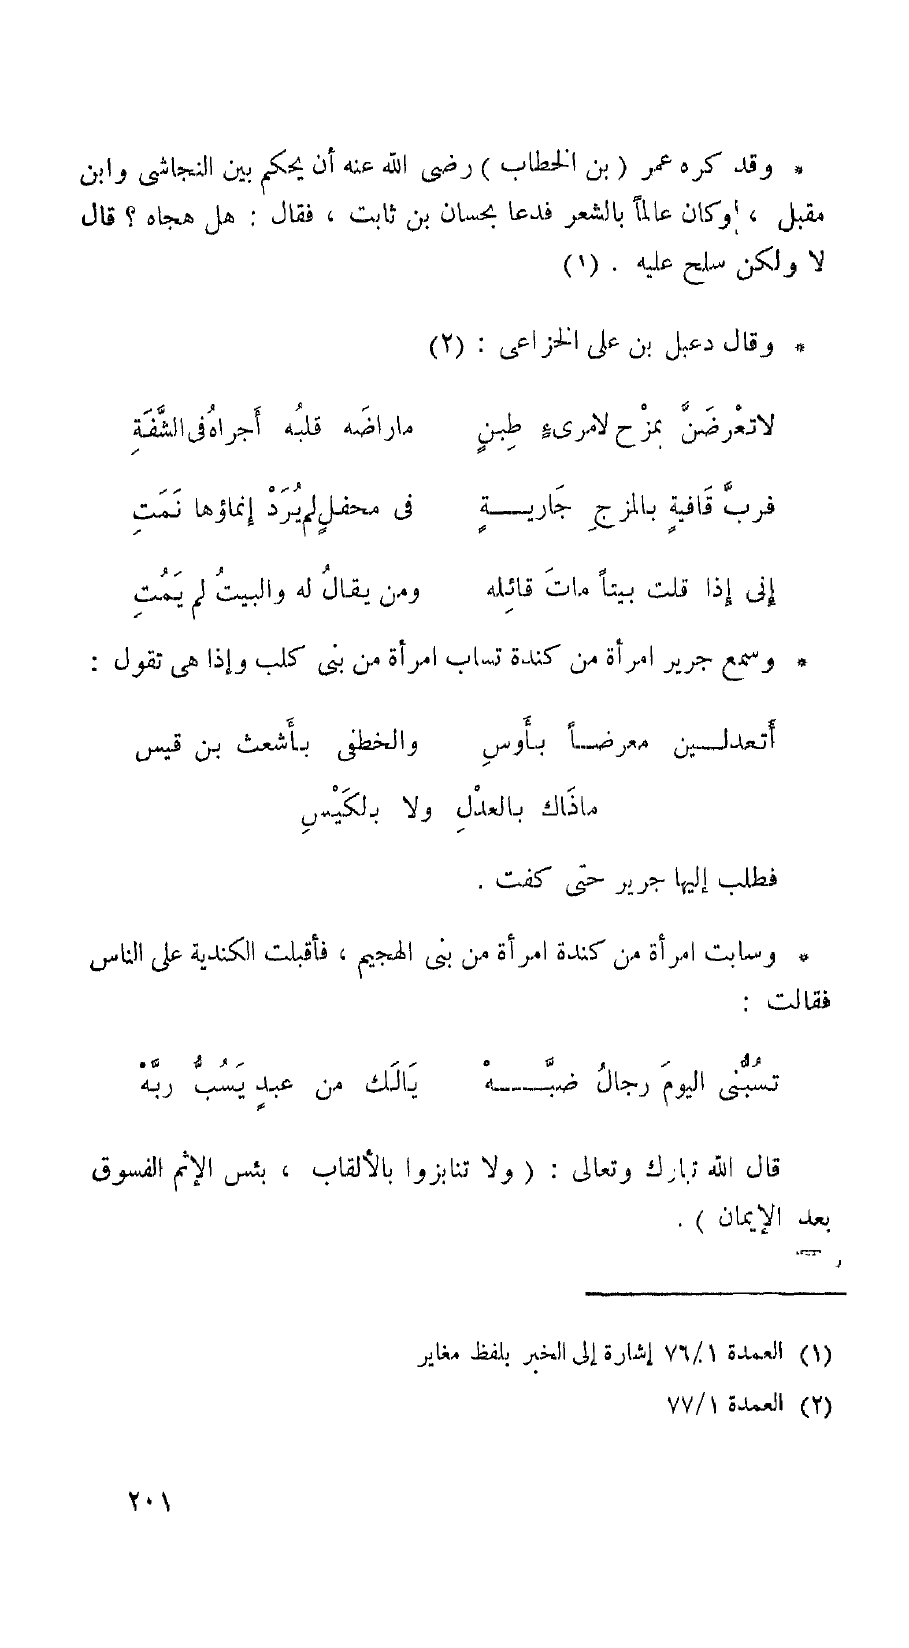 * وقد كره عمر ( بن الخطاب ) رضى الله عنه أن يحكم بين النجاشى وابن
مقبل ، وكان عالماً بالشعر فدعا بحسان بن ثابت ، فقال : هل هجاه ؟ قال
لا ولكن سلح عليه . (١)
* وقال دعبل بن على الخزاعى : (٢)
لاتعْرضَنَّ بمزْح لامرىءٍ طِبنٍ ماراضَه قلبُه أَجراهُ فى الشَّفَةِ
فربَّ قَافيةٍ بالمزجِ جَاريــةٍ فى محفلٍ لم يُرَدْ إنماؤها نَمَتِ
إنى إذا قلت بيتاً ماتَ قائِله ومن يقالُ له والبيتُ لم يَمُتِ
* وسمع جرير امرأة من كندة تساب امرأة من بنى كلب وإذا هى تقول :
أَتعدلــين معرضــاً بأَوسِ والخطفى بأَشعث بن قيس
ماذَاك بالعدْلِ ولا بالكَيْسِ
فطلب إليها جرير حتى كفت .
* وسابت امرأة من كندة امرأة من بنى الهجيم ، فأقبلت الكندية على الناس
فقالت :
تسُبُّنى اليومَ رجالُ ضبَّــــهْ يَالَك من عبدٍ يَسُبُّ ربَّهْ
قال الله تبارك وتعالى : ( ولا تنابزوا بالألقاب ، بئس الإثم الفسوق
بعد الإيمان ) .
(١) العمدة ٧٦/١ إشارة إلى الخبر بلفظ مغاير
(٢) العمدة ٧٧/١
٢٠١